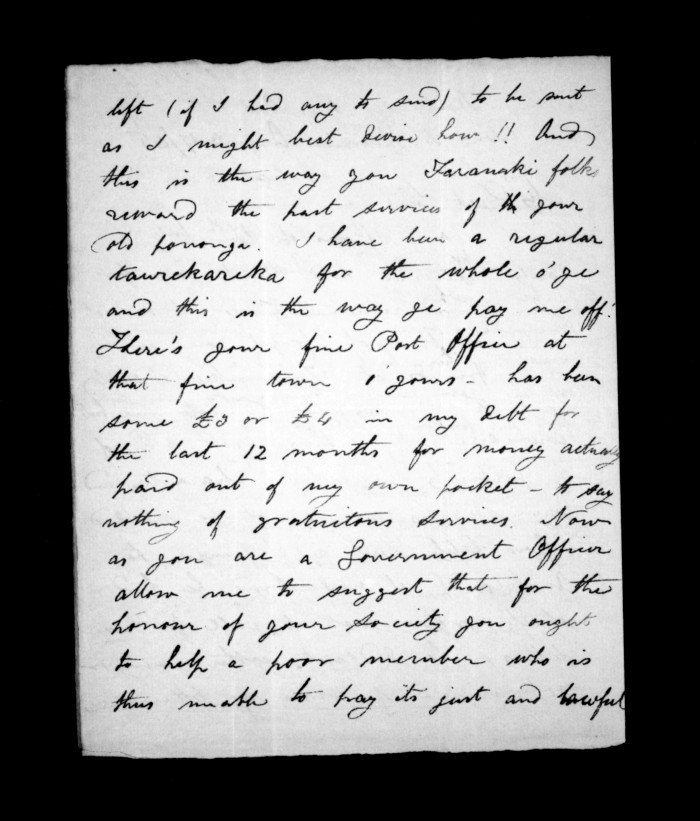 left (if I had any to send) to be sent
as I might best devise how!! And
this is the way you Taranaki folks
reward the past services of your
old pononga. I have been a regular
taurekareka for the whole o' ye
and this is the way ye pay me off!
There's your fine Post Officer at
that fine town o' yours - has been
some £3 or £4 in my debt for
the last 12 months for money actually
paid out of my own pocket - to say
nothing of gratuitous services. Now
as you are a Government Officer
allow me to suggest that for the
honour of your Society you ought
to help a poor member who is
thus unable to pay its just and lawful